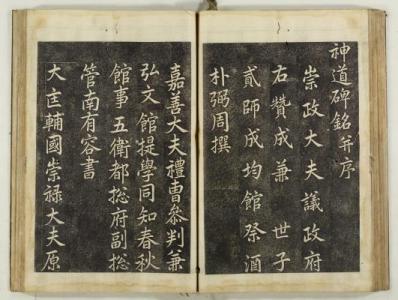 神道碑銘并序
崇政大夫議政府
右贊成兼　世子
貳師成均館祭酒
朴弼周撰
嘉善大夫禮曺叅判兼
弘文館提學同知春秋
館事五衛都捴府副捴
管南有容書
大匡輔國崇祿大夫原